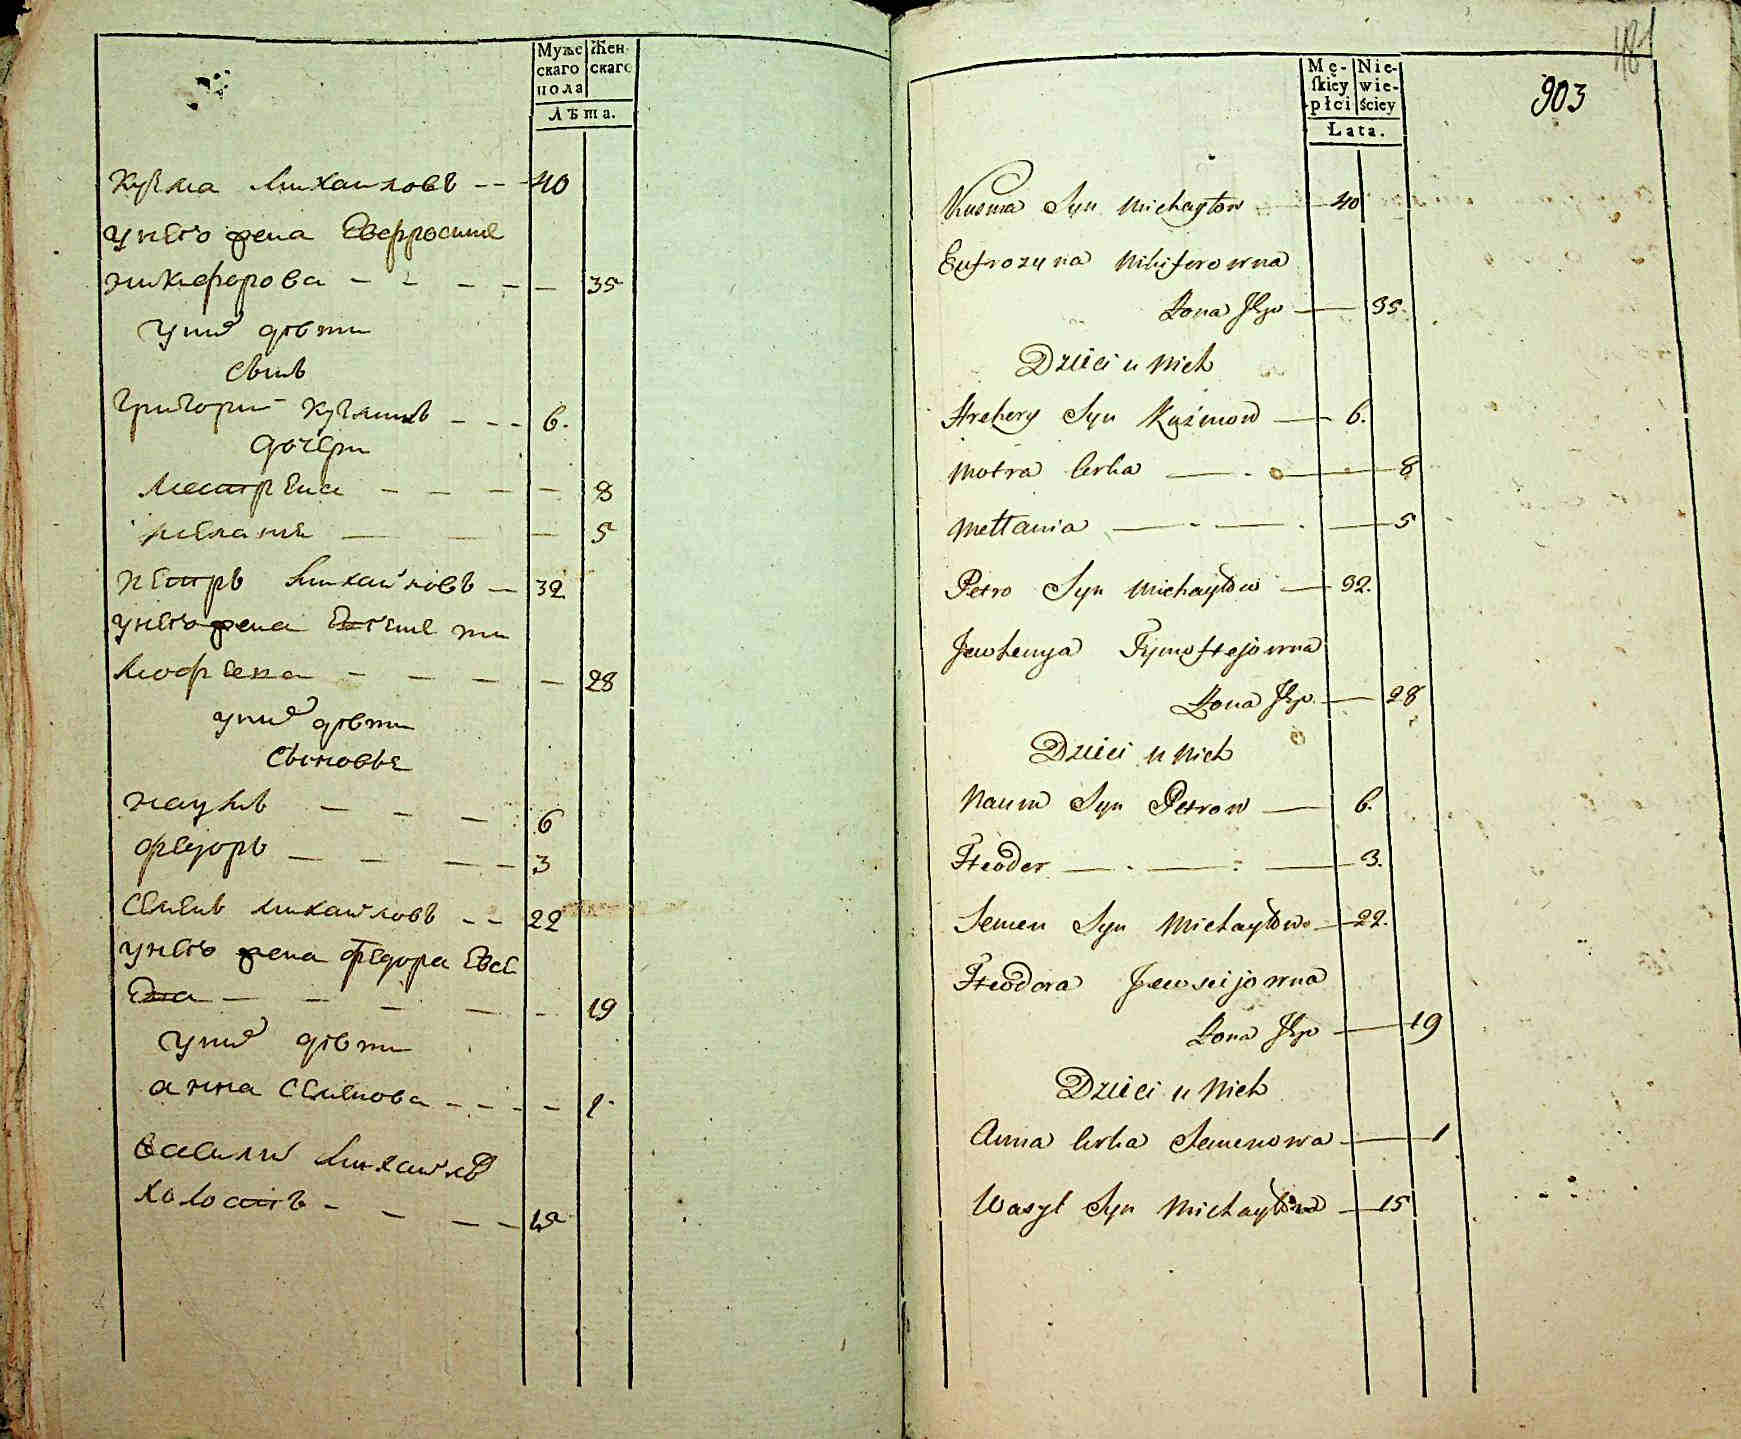 Мужс
скаго
пола
Жен
скаго
Лѣта.
Кузма Михаиловъ - - - 40
унего жена Евфросинѣ
никифорова - - - - - 35
униⷯ дѣти
Сынъ
григорий Кузминъ - - - 6.
дочери
Мотрена - - - - 8
мелания - - - 5
петръ михайловъ - 32
унего жена Евгение ти
мофеева - - - - - 28
униⷯ дѣти
Сыновья
наумъ - - - 6
федоръ - - - - 3
Семенъ михайловъ - - 22
унего жена федора Евсе
Ева - - - - - 19
униⷯ дѣти
анна Семенова - - - - 1
василий михайловъ
холостъ - - - - 15
481
903
Mę-
skiey
płci
Nie-
wie-
ściey
Lata.
Kusma Syn Michayłow 40
Eufrozyna Nikiforowna
Żona Jego 35.
Dzieci u Nich
Hrehory Syn Kuźmow 6.
Motra Corka 8
Mełłania 5
Petro Syn Michayłow 32.
Jewhenya Tymoftejowna
Żona Jego 28
Dzieci u Nich
Naum Syn Petrow 6.
Fteoder 3.
Semen Syn Michayłow 22.
Fteodora Jewseijowna
Żona Jego 19
Dzieci u Nich
Anna Corka Semenowa 1
Wasyl Syn Michayłow 15